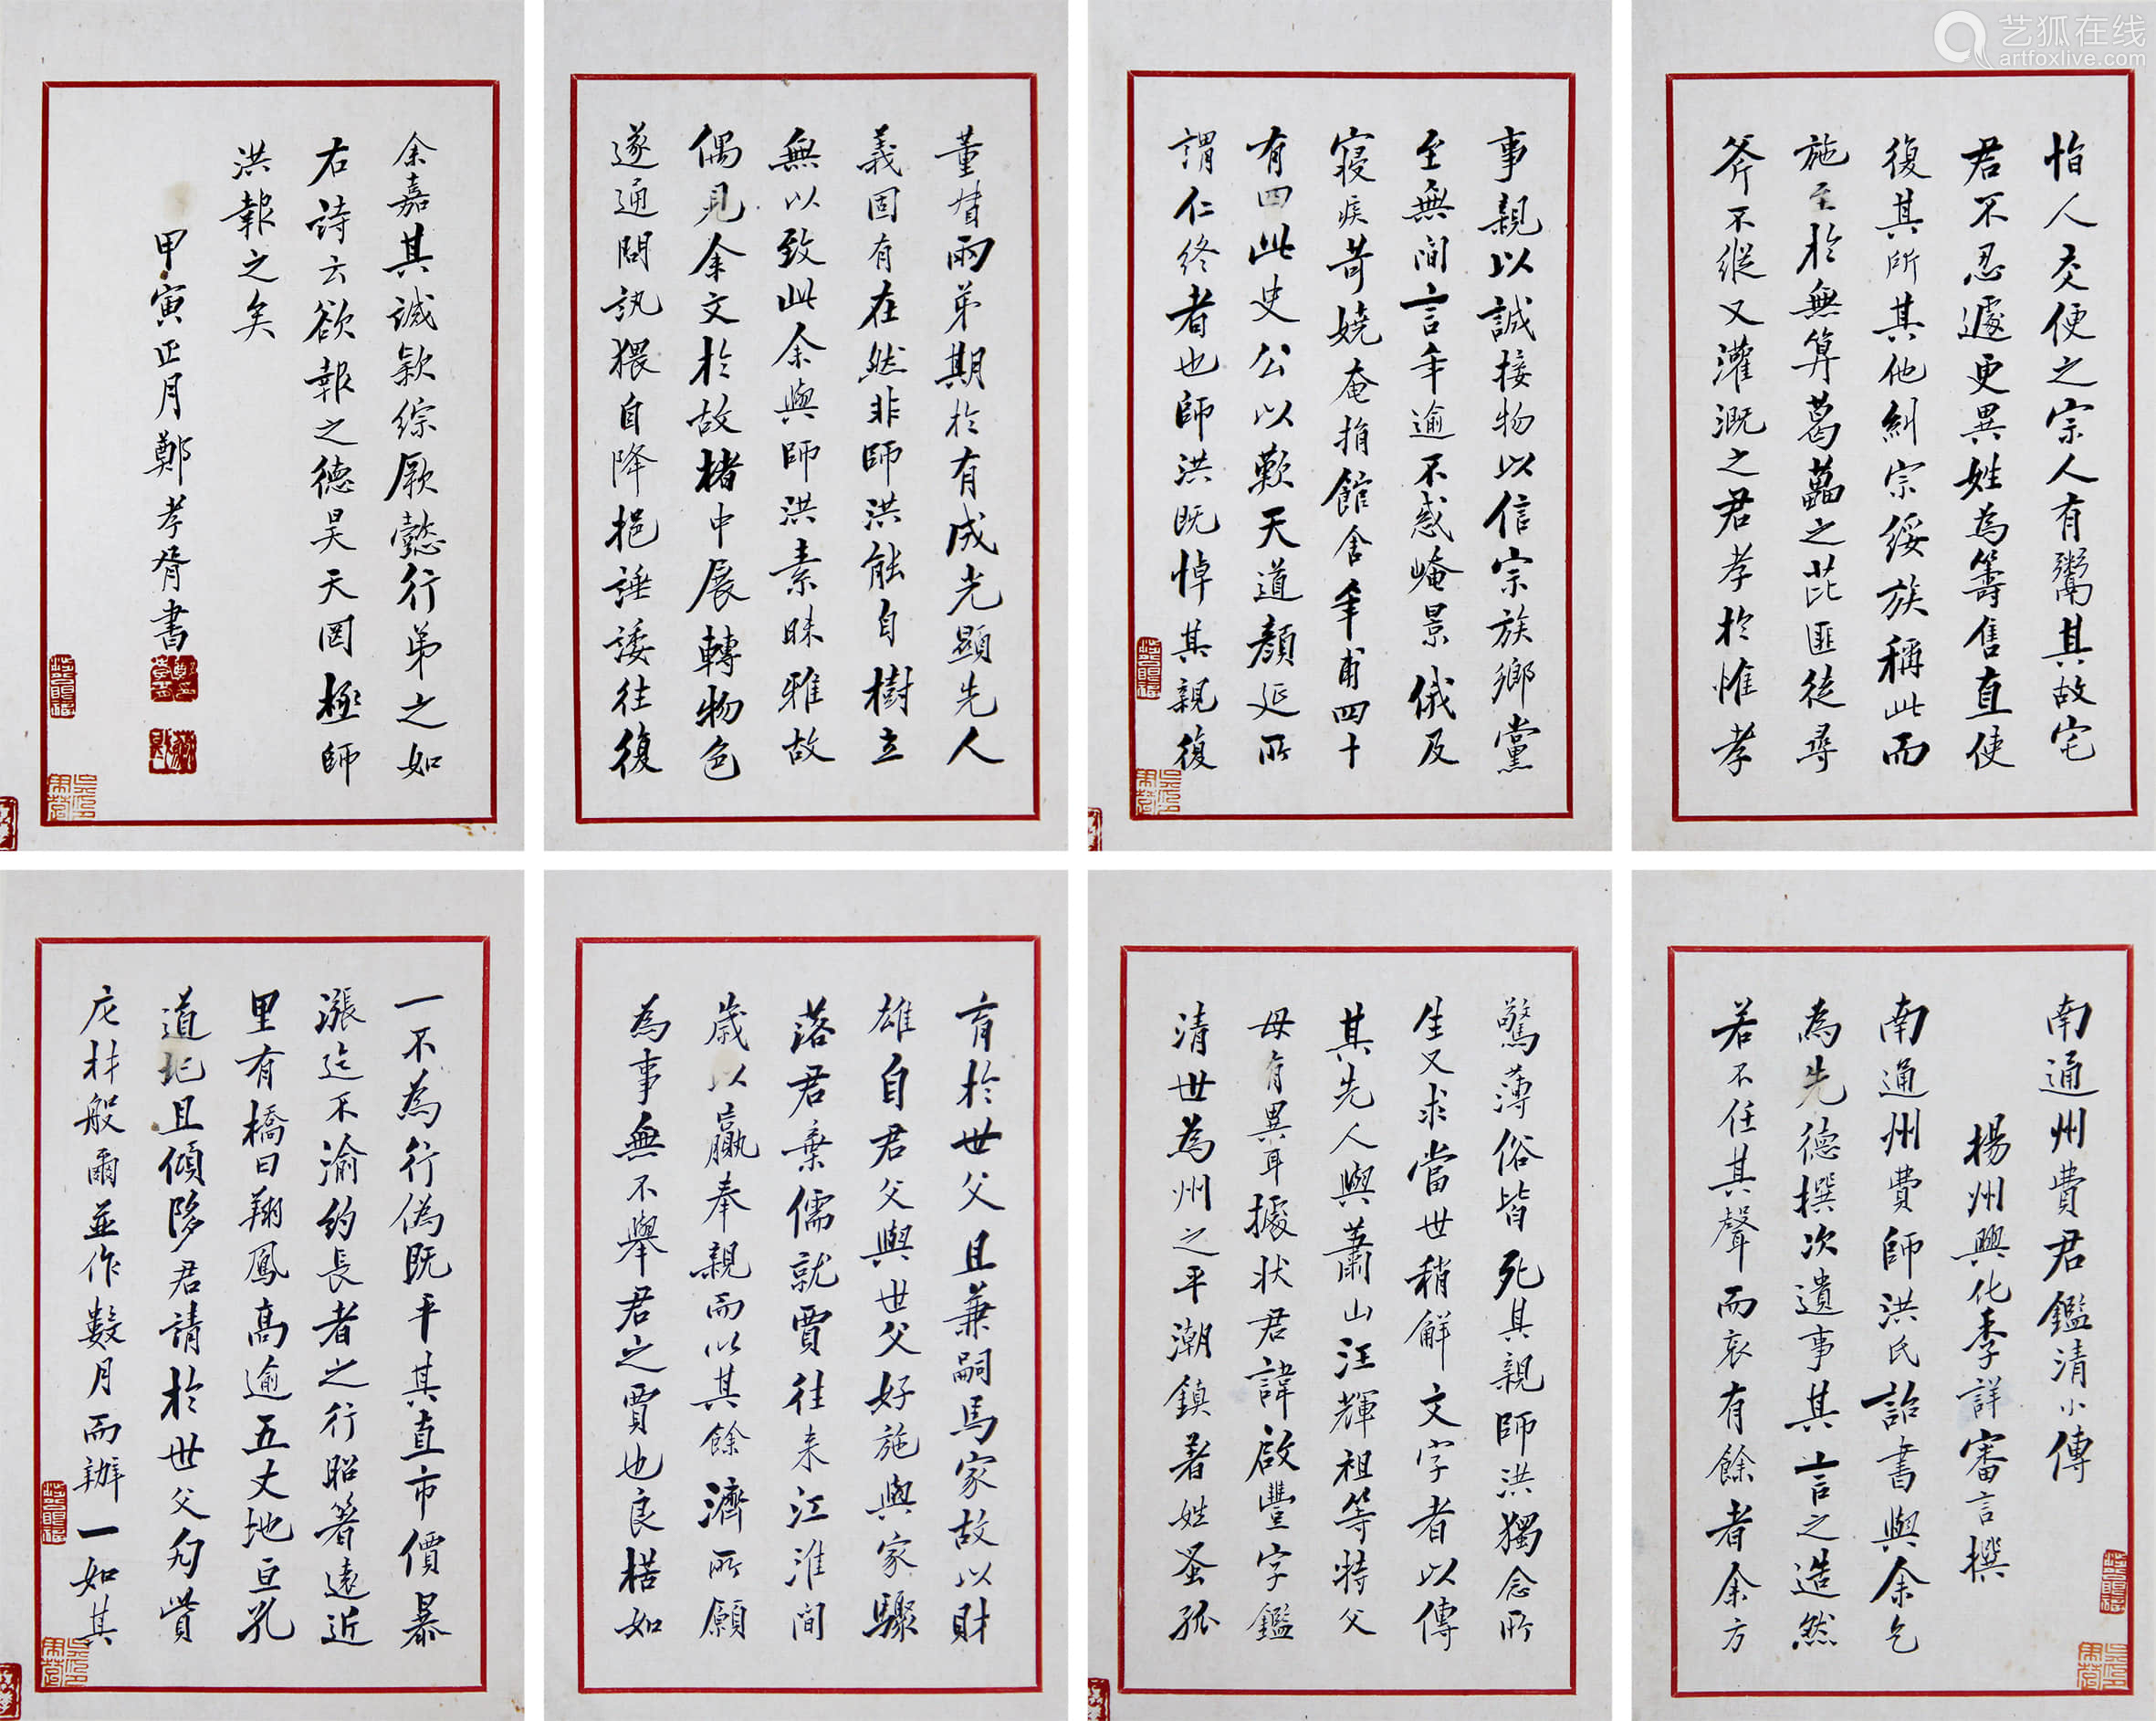 南通州費君鑑清小傳
揚州興化李詳審言撰
南通州費師洪氏詒書與余乞
為先德撰次遺事其言之造然
若不任其聲而哀有餘者余方
驚薄俗皆死其親師洪獨念所
生又求當世稍解文字者以傳
其先人與蕭山汪輝祖等特父
母有異耳據狀君諱啟豐字鑑
清世為州之平潮鎮著姓蚤孤
育於世父且兼嗣馬家故以財
雄自君父與世父好施與家驟
落君棄儒就賈往来江淮間
歲以贏奉親而以其餘濟所願
為事無不舉君之賈也良楛如
一不為行偽既平其直市價暴
漲迄不渝約長者之行昭著遠近
里有橋曰翔鳳高逾五丈地亘孔
道圯且傾陊君請於世父勼貲
庀材般爾並作數月而辦一如其
怡人交便之宗人有鬻其故宅
君不忍遽更異姓為籌售直使
復其所其他糾宗綏族稱此而
施至於無算葛藟之芘匪徒尋
斧不縱又灌溉之君孝於惟孝
事親以誠接物以信宗族鄉黨
至無間言年逾不惑崦景俄及
寢疾苛嬈奄捐館舍年甫四十
有四此史公以歎天道顏延所
謂仁終者也師洪既悼其親復
董督兩弟期於有成光顯先人
義固有在然非師洪能自樹立
無以致此余與師洪素昧雅故
偶見余文於故楮中展轉物色
遂通問訊猥自降挹諈諉往復
余嘉其誠款綜厥懿行弟之如
右詩云欲報之德昊天罔極師
洪報之矣
甲寅正月鄭孝胥書
艺狐在线
artfoxlive.com